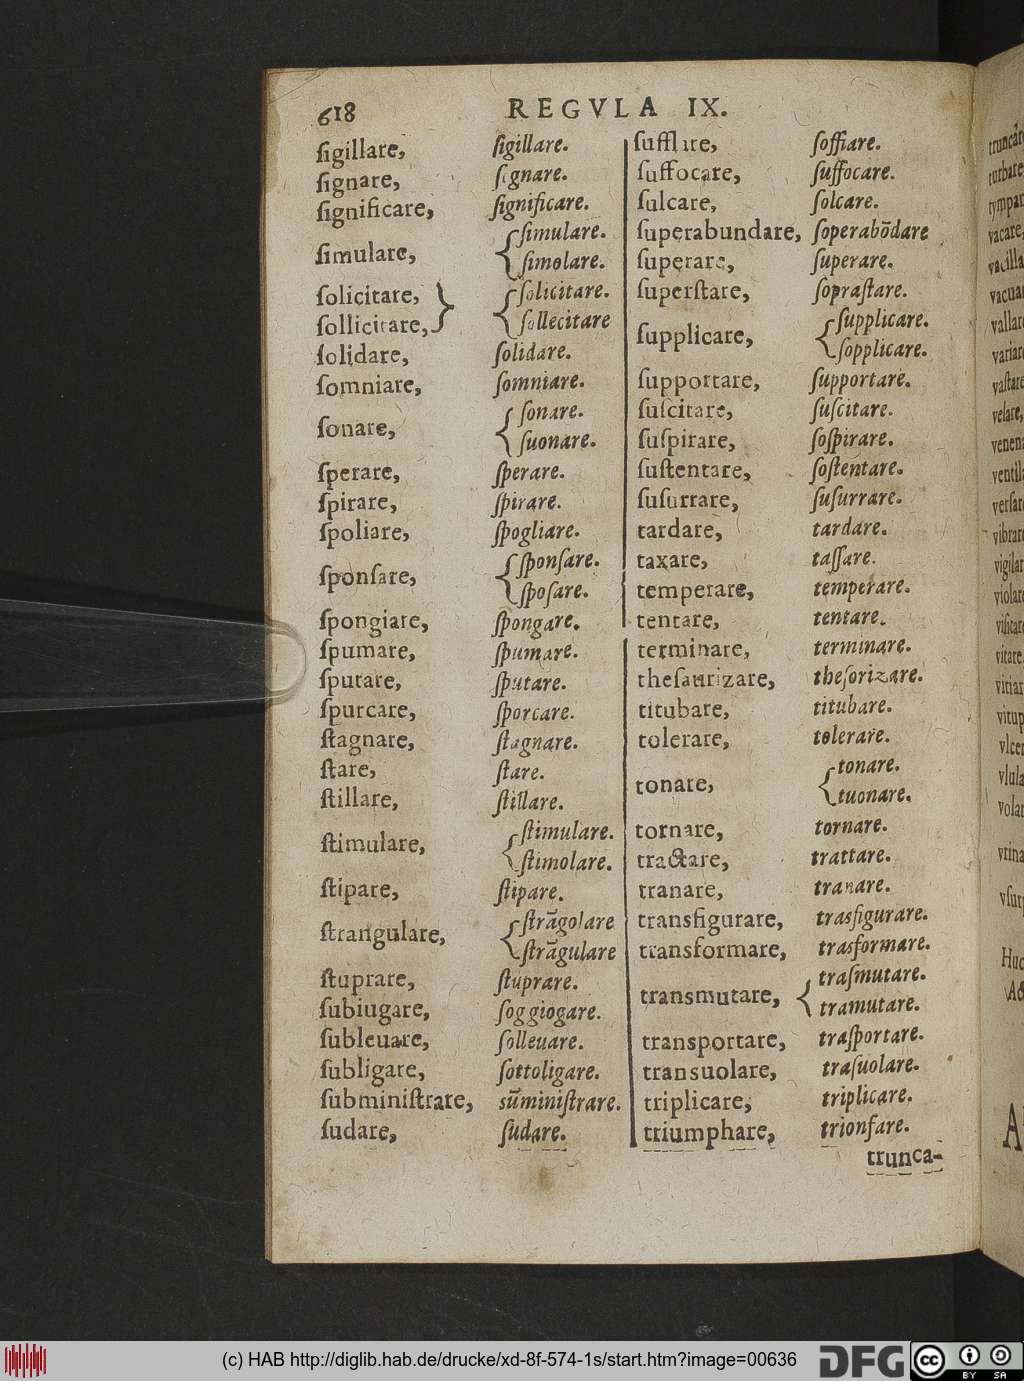 618 REGVLA IX.
ſigillare, ſigillare.
ſignare, ſignare.
ſignificare, ſignificare.
ſimulare, { ſimulare.
ſimolare.
ſolicitare, } { ſolicitare.
ſollicitare, ſollecitare
ſolidare, ſolidare.
ſomniare, ſomniare.
ſonare, { ſonare.
ſuonare.
ſperare, ſperare.
ſpirare, ſpirare.
ſpoliare, ſpogliare.
ſponſare, { ſponſare.
ſpoſare.
ſpongiare, ſpongare.
ſpumare, ſpumare.
ſputare, ſputare.
ſpurcare, ſporcare.
ſtagnare, ſtagnare.
ſtare, ſtare.
ſtillare, ſtillare.
ſtimulare, { ſtimulare.
ſtimolare.
ſtipare, ſtipare.
ſtrangulare, { ſtrãgolare
ſtrãgulare
ſtuprare, ſtuprare.
ſubiugare, ſoggiogare.
ſubleuare, ſolleuare.
ſubligare, ſottoligare.
ſubminiſtrare, sũminiſtrare.
ſudare, ſudare.
ſufflare, ſoffiare.
ſuffocare, ſuffocare.
ſulcare, ſolcare.
ſuperabundare, ſoperabõdare
ſuperare, ſuperare.
ſuperſtare, ſopraſtare.
ſupplicare, { ſupplicare.
ſopplicare.
ſupportare, ſupportare.
ſuſcitare, ſuſcitare.
ſuſpirare, ſoſpirare.
ſuſtentare, ſoſtentare.
ſuſurrare, ſuſurrare.
tardare, tardare.
taxare, taſſare.
temperare, temperare.
tentare, tentare.
terminare, terminare.
theſaurizare, theſorizare.
titubare, titubare.
tolerare, tolerare.
tonare, { tonare.
tuonare.
tornare, tornare.
tractare, trattare.
tranare, tranare.
transfigurare, trasfigurare.
transformare, trasformare.
transmutare, { traſmutare.
tramutare.
transportare, traſportare.
transuolare, traſuolare.
triplicare, triplicare.
triumphare, trionfare.
trunca-
(c) HAB http://diglib.hab.de/drucke/xd-8f-574-1s/start.htm?image=00636
DFG
cc BY SA